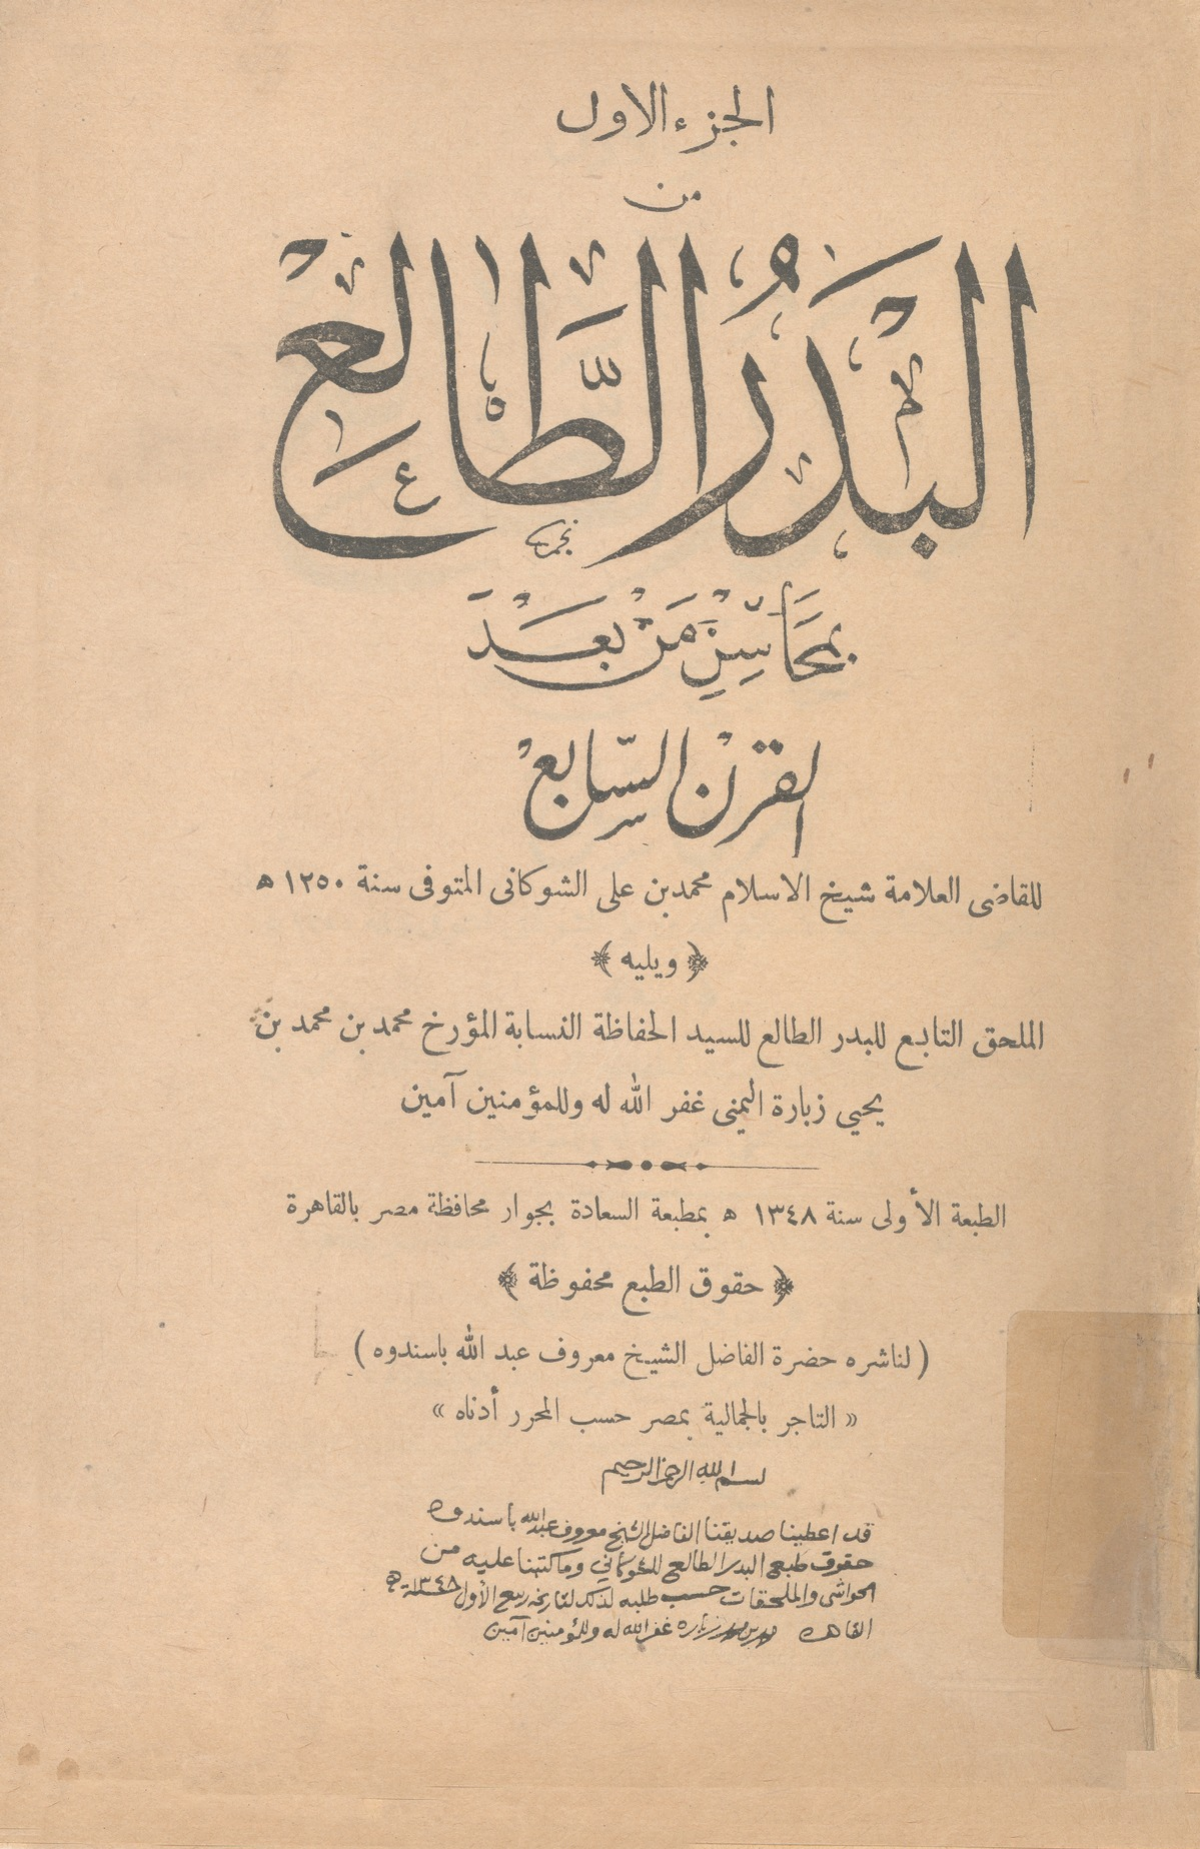 الجزء الاول
من
البَدْرُ الطَّالِعْ
بِمَحَاسِنِ مَنْ بَعْدَ
القَرْنِ السَّابِعْ
للقاضى العلامة شيخ الاسلام محمد بن على الشوكانى المتوفى سنة ١٢٥٠ ه
﴿ ويليه ﴾
الملحق التابع للبدر الطالع للسيد الحفاظة النسابة المؤرخ محمد بن محمد بن
يحيي زبارة اليمنى غفر الله له وللمؤمنين آمين
الطبعة الأولى سنة ١٣٤٨ ه بمطبعة السعادة بجوار محافظة مصر بالقاهرة
﴿ حقوق الطبع محفوظة ﴾
( لناشره حضرة الفاضل الشيخ معروف عبد الله باسندوه )
« التاجر بالجمالية بمصر حسب المحرر أدناه »
بسم الله الرحمن الرحيم
قد اعطينا صديقنا الفاضل الشيخ معروف عبد الله باسندوه
حقوق طبع البدر الطالع للشوكاني وما كتبنا عليه من
الحواشى والملحقات حسب طلبه لذلك لتاريخه ربيع الأول سنة ١٣٤٨ه
القاهره محمد بن محمد زباره غفر الله له وللمؤمنين آمين